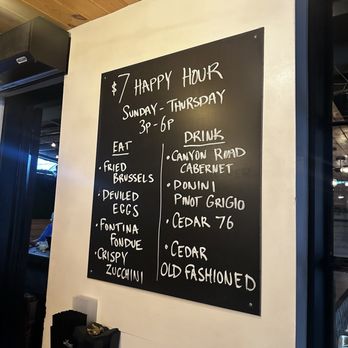 $7 HAPPY HOUR
SUNDAY - THURSDAY
3P - 6P
EAT
• FRIED
BRUSSELS
• DEVILED
EGGS
• FONTINA
FONDUE
• CRISPY
ZUCCHINI
DRINK
• CANYON ROAD
CABERNET
• DONINI
PINOT GRIGIO
• CEDAR 76
• CEDAR
OLD FASHIONED